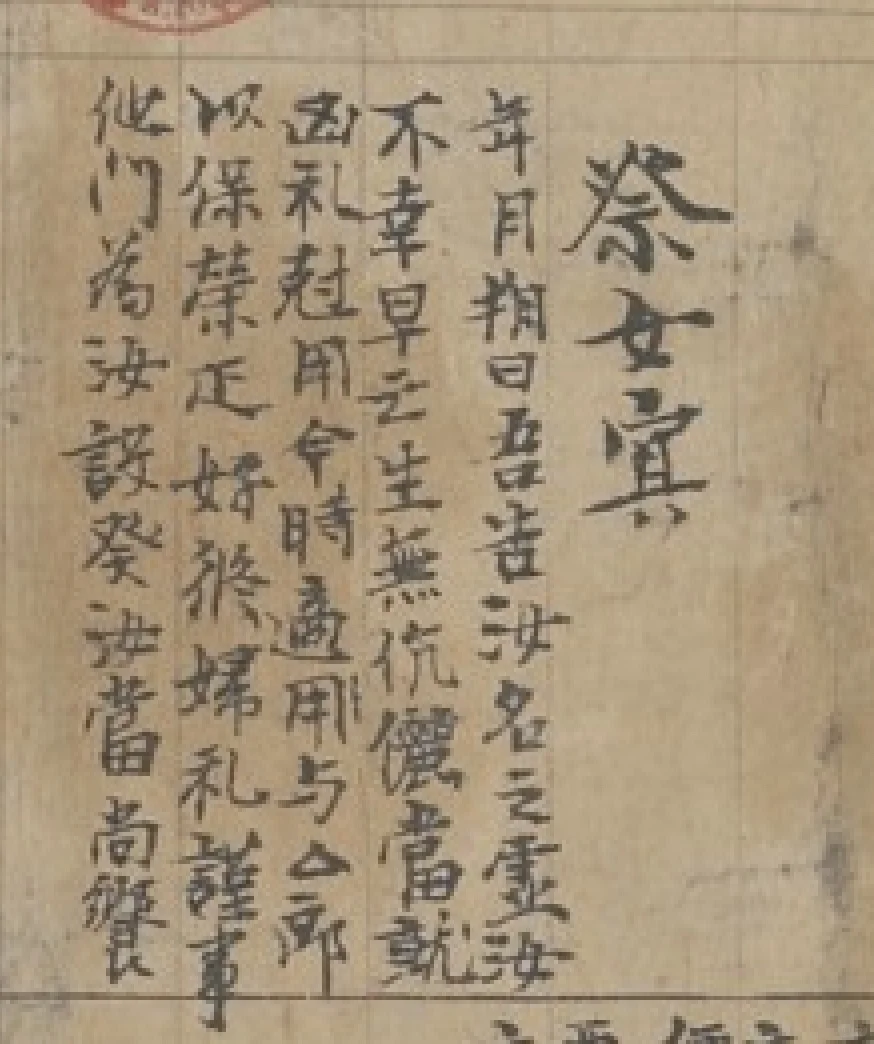 祭女冥
年月朔日吾告汝名之霊汝
不幸早亡生無伉儷當就
凶礼尅用今時適用与厶郎
以保榮疋好終婦礼謹事
他門為汝設祭汝當尚饗